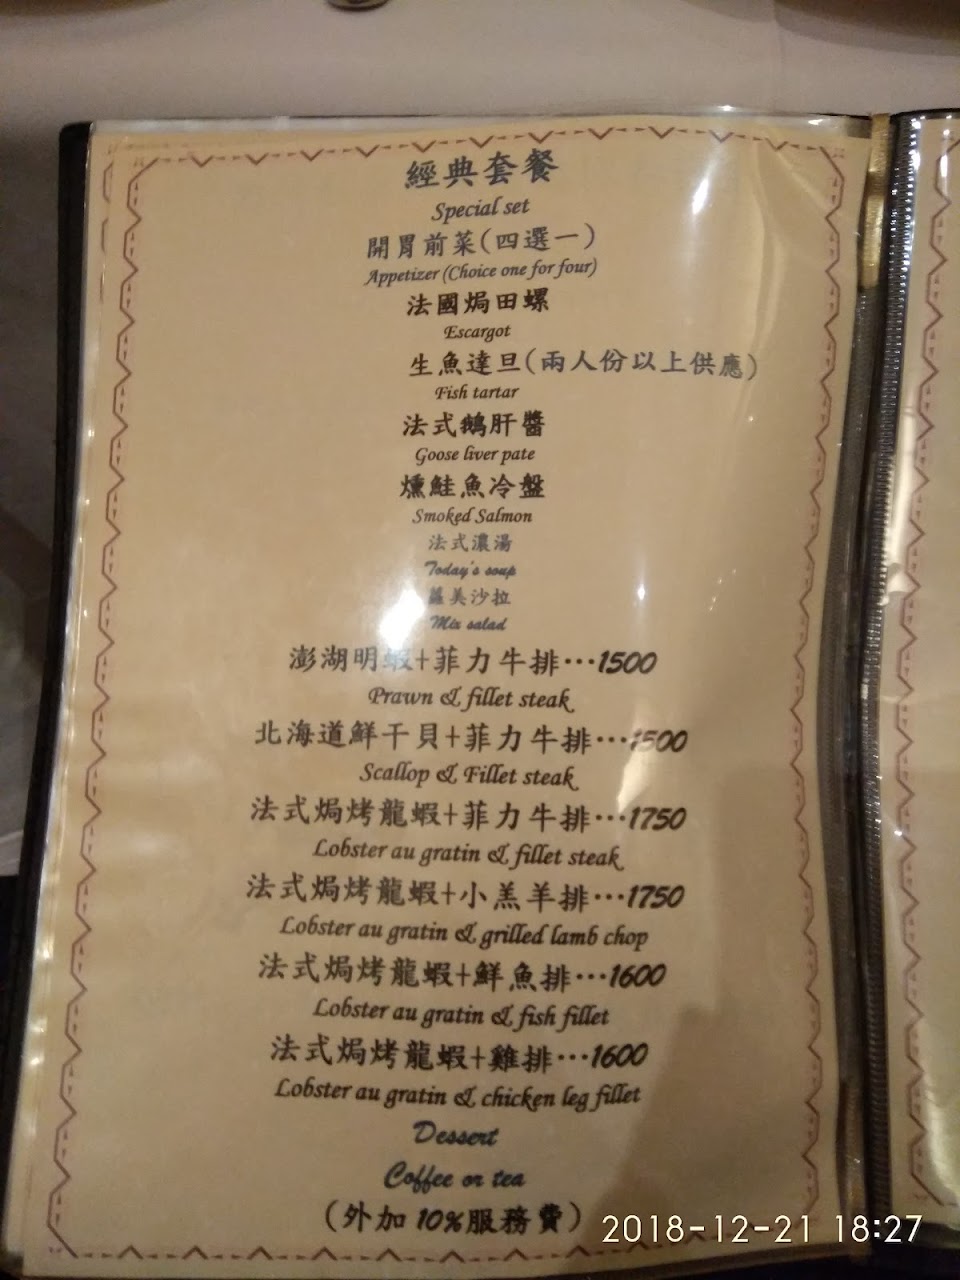 經典套餐
Special set
開胃前菜(四選一)
Appetizer (Choice one for four)
法國焗田螺
Escargot
生魚達旦(兩人份以上供應)
Fish tartar
法式鵝肝醬
Goose liver pate
燻鮭魚冷盤
Smoked Salmon
法式濃湯
Today's soup
蘿美沙拉
Mix salad
澎湖明蝦+菲力牛排…1500
Prawn & fillet steak
北海道鮮干貝+菲力牛排…1500
Scallop & Fillet steak
法式焗烤龍蝦+菲力牛排…1750
Lobster au gratin & fillet steak
法式焗烤龍蝦+小羔羊排…1750
Lobster au gratin & grilled lamb chop
法式焗烤龍蝦+鮮魚排…1600
Lobster au gratin & fish fillet
法式焗烤龍蝦+雞排…1600
Lobster au gratin & chicken leg fillet
Dessert
Coffee or tea
(外加 10%服務費)
2018-12-21 18:27